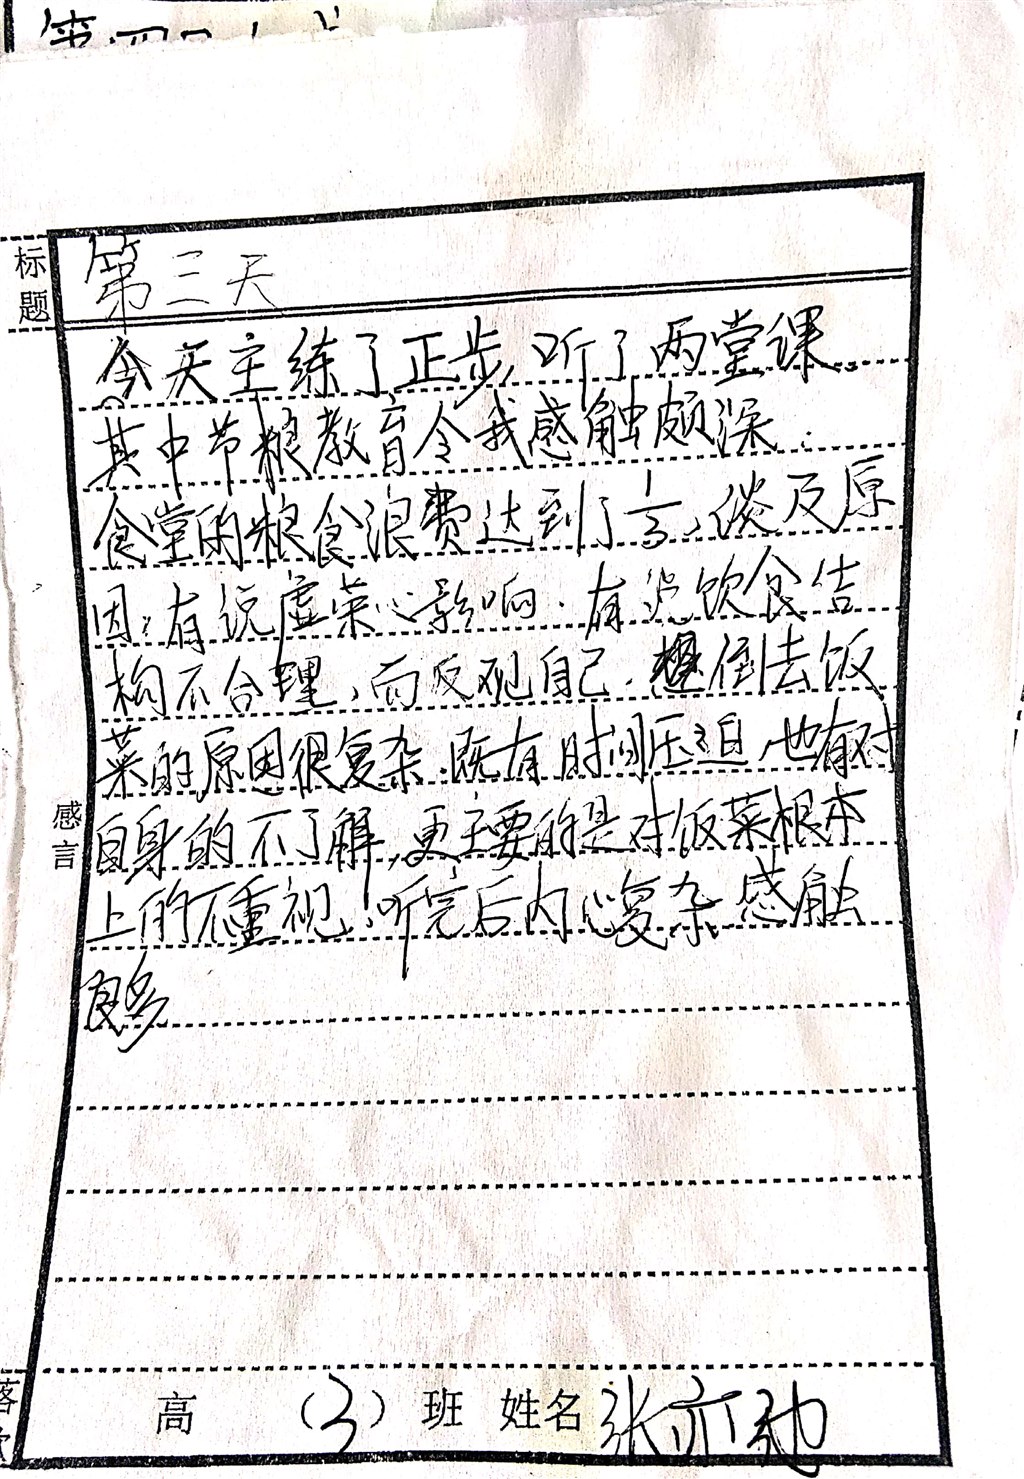 标题
第三天
今天主练了正步,听了两堂课.
其中节粮教育令我感触颇深.
食堂的粮食浪费达到了1/3,谈及原
因:有说虚荣心影响.有说饮食结
构不合理,而反观自己.倒去饭
菜的原因很复杂.既有时间压迫,也有对
自身的不了解,更主要的是对饭菜根本
上的不重视,听完后内心复杂感触
良多
感言
高 (3) 班 姓名 张亦弛